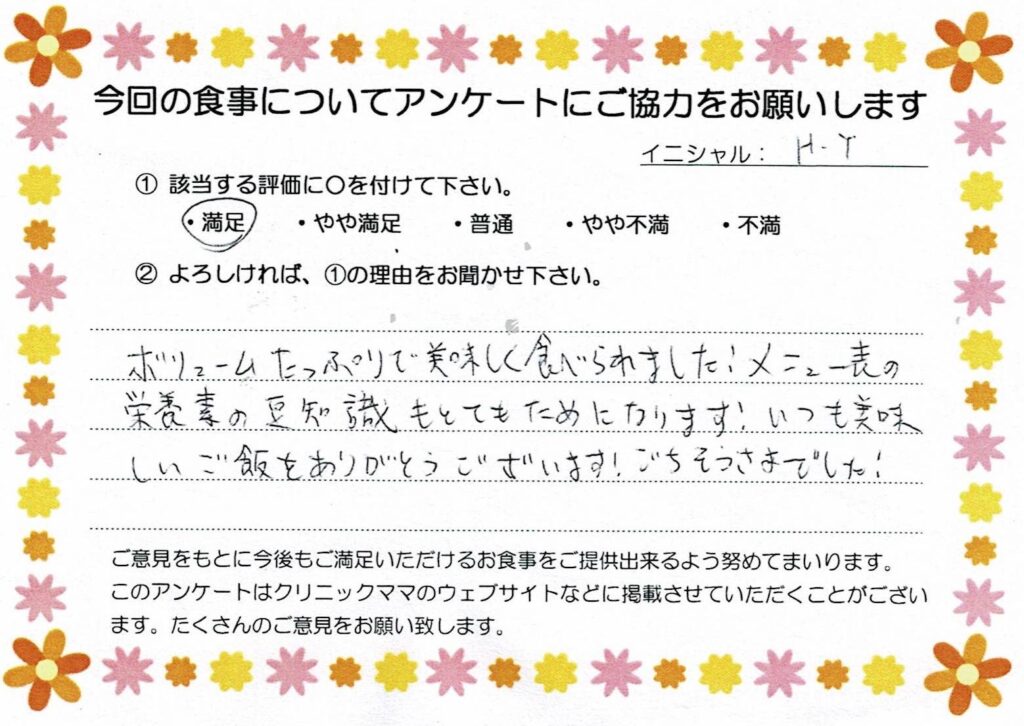 今回の食事についてアンケートにご協力をお願いします
イニシャル： H.Y
① 該当する評価に〇を付けて下さい。
・満足 ・やや満足 ・普通 ・やや不満 ・不満
② よろしければ、①の理由をお聞かせ下さい。
ボリュームたっぷりで美味しく食べられました！メニュー表の
栄養素の豆知識もとてもためになります！いつも美味
しいご飯をありがとうございます！ごちそうさまでした！
ご意見をもとに今後もご満足いただけるお食事をご提供出来るよう努めてまいります。
このアンケートはクリニックママのウェブサイトなどに掲載させていただくことがござい
ます。たくさんのご意見をお願い致します。